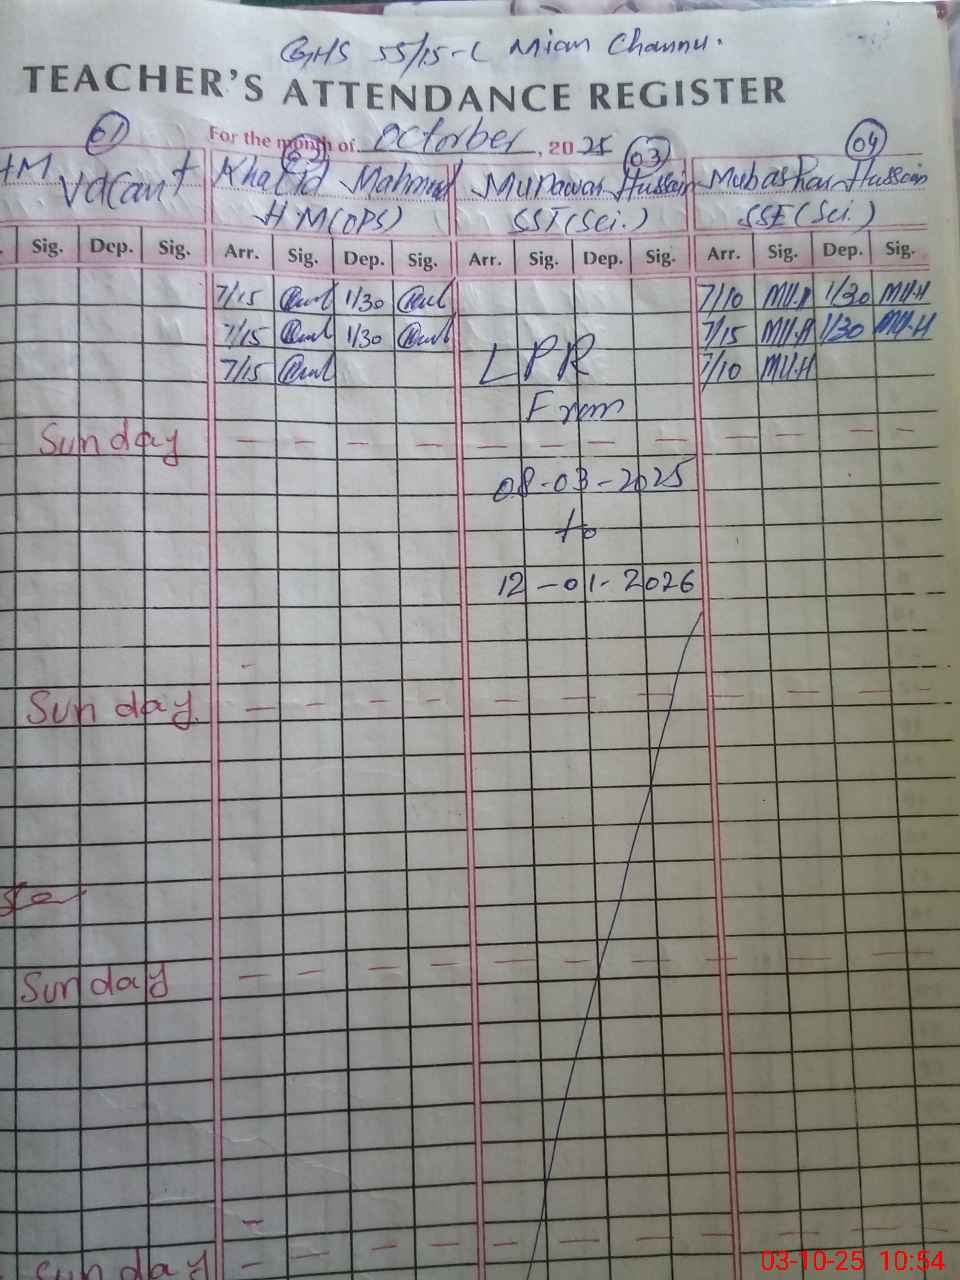 GHS 55/15-L Mian Channu.
TEACHER'S ATTENDANCE REGISTER
For the month of Octorber, 2025
01 03 04
HM Vacant Khalid Mahmud Munawar Hussain Mubashar Hussain
H.M(OPS) SST(Sci.) SSE(Sci.)
Sig. Dep. Sig. Arr. Sig. Dep. Sig. Arr. Sig. Dep. Sig. Arr. Sig. Dep. Sig.
7/15 1/30 7/10 MU-H 1/30 MU-H
7/15 1/30 7/15 MU-H 1/30 MU-H
7/15 LPR 7/10 MU-H
From
Sunday — — — — — — — — — — — —
08-03-2025
to
12-01-2026
Sunday. — — — — — — — — — — — —
Sunday — — — — — — — — — — — —
Sunday — — — — — — — — — — — —
03-10-25 10:54